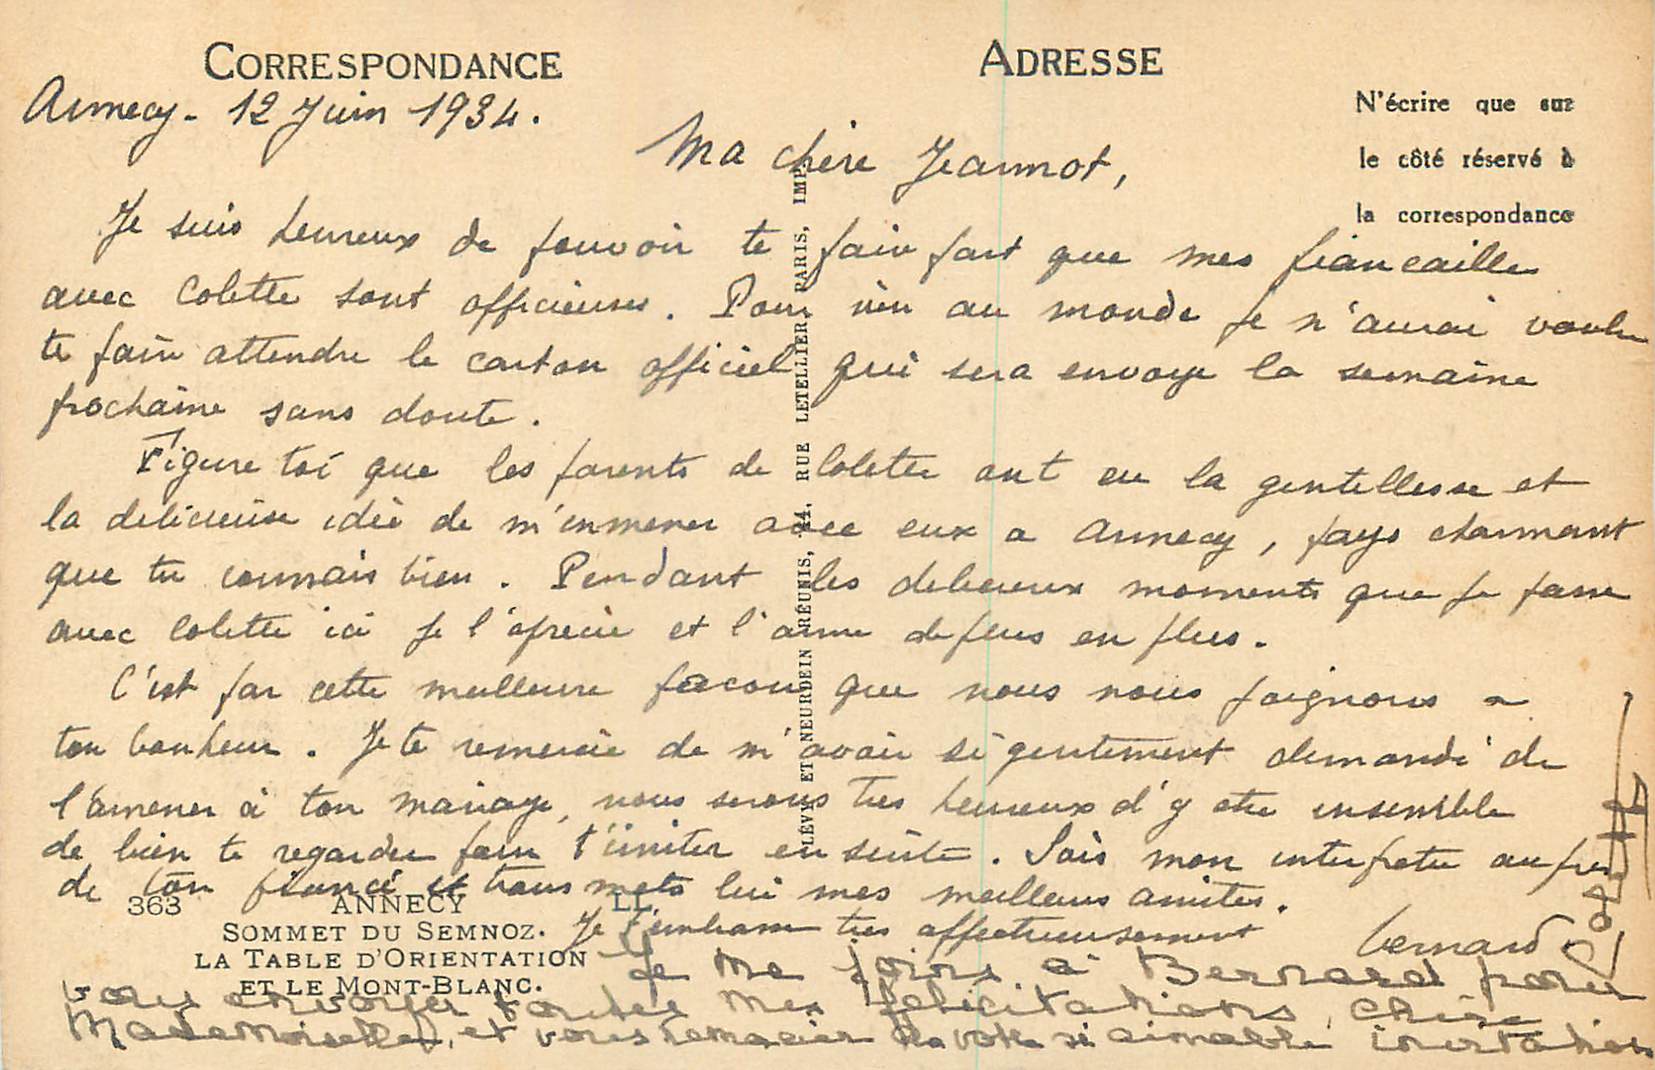 CORRESPONDANCE
ADRESSE
N'écrire que sur
le côté réservé à
la correspondance
Annecy - 12 Juin 1934.
Ma chère Jeannot,
Je suis heureux de pouvoir te faire part que mes fiancailles
avec Colette sont officieuses. Pour rien au monde je n'aurai voulu
te faire attendre le carton officiel qui sera envoye la semaine
prochaine sans doute.
Figure toi que les parents de Colette ont eu la gentillesse et
la delicieuse idée de m'enmener avec eux a Annecy, pays charmant
que tu connais bien. Pendant les delicieux moments que je passe
avec Colette ici je l'aprecie et l'aime de plus en plus.
C'est par cette meilleure facon que nous nous joignons a
ton bonheur. Je te remercie de m'avoir si gentiment demandé de
l'amener à ton mariage, nous serons tres heureux d'y etre ensemble
de bien te regarder pour t'imiter en suite. Sois mon interprete aupres
de ton fiancé et transmets lui mes meilleurs amities.
Je t'embrasse tres affectueusement
Bernard.
Je me joins à Bernard pour
vous envoyer toutes mes félicitations, chère
Mademoiselle, et vous remercier de votre si aimable invitation
Colette
363 ANNECY LL
SOMMET DU SEMNOZ.
LA TABLE D'ORIENTATION
ET LE MONT-BLANC.
LÉVY ET NEURDEIN RÉUNIS, 44, RUE LETELLIER, PARIS, IMP.